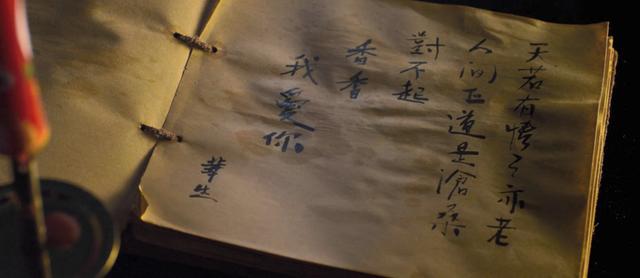 天若有情天亦老
人間正道是滄桑
對不起
香香
我愛你。
華生